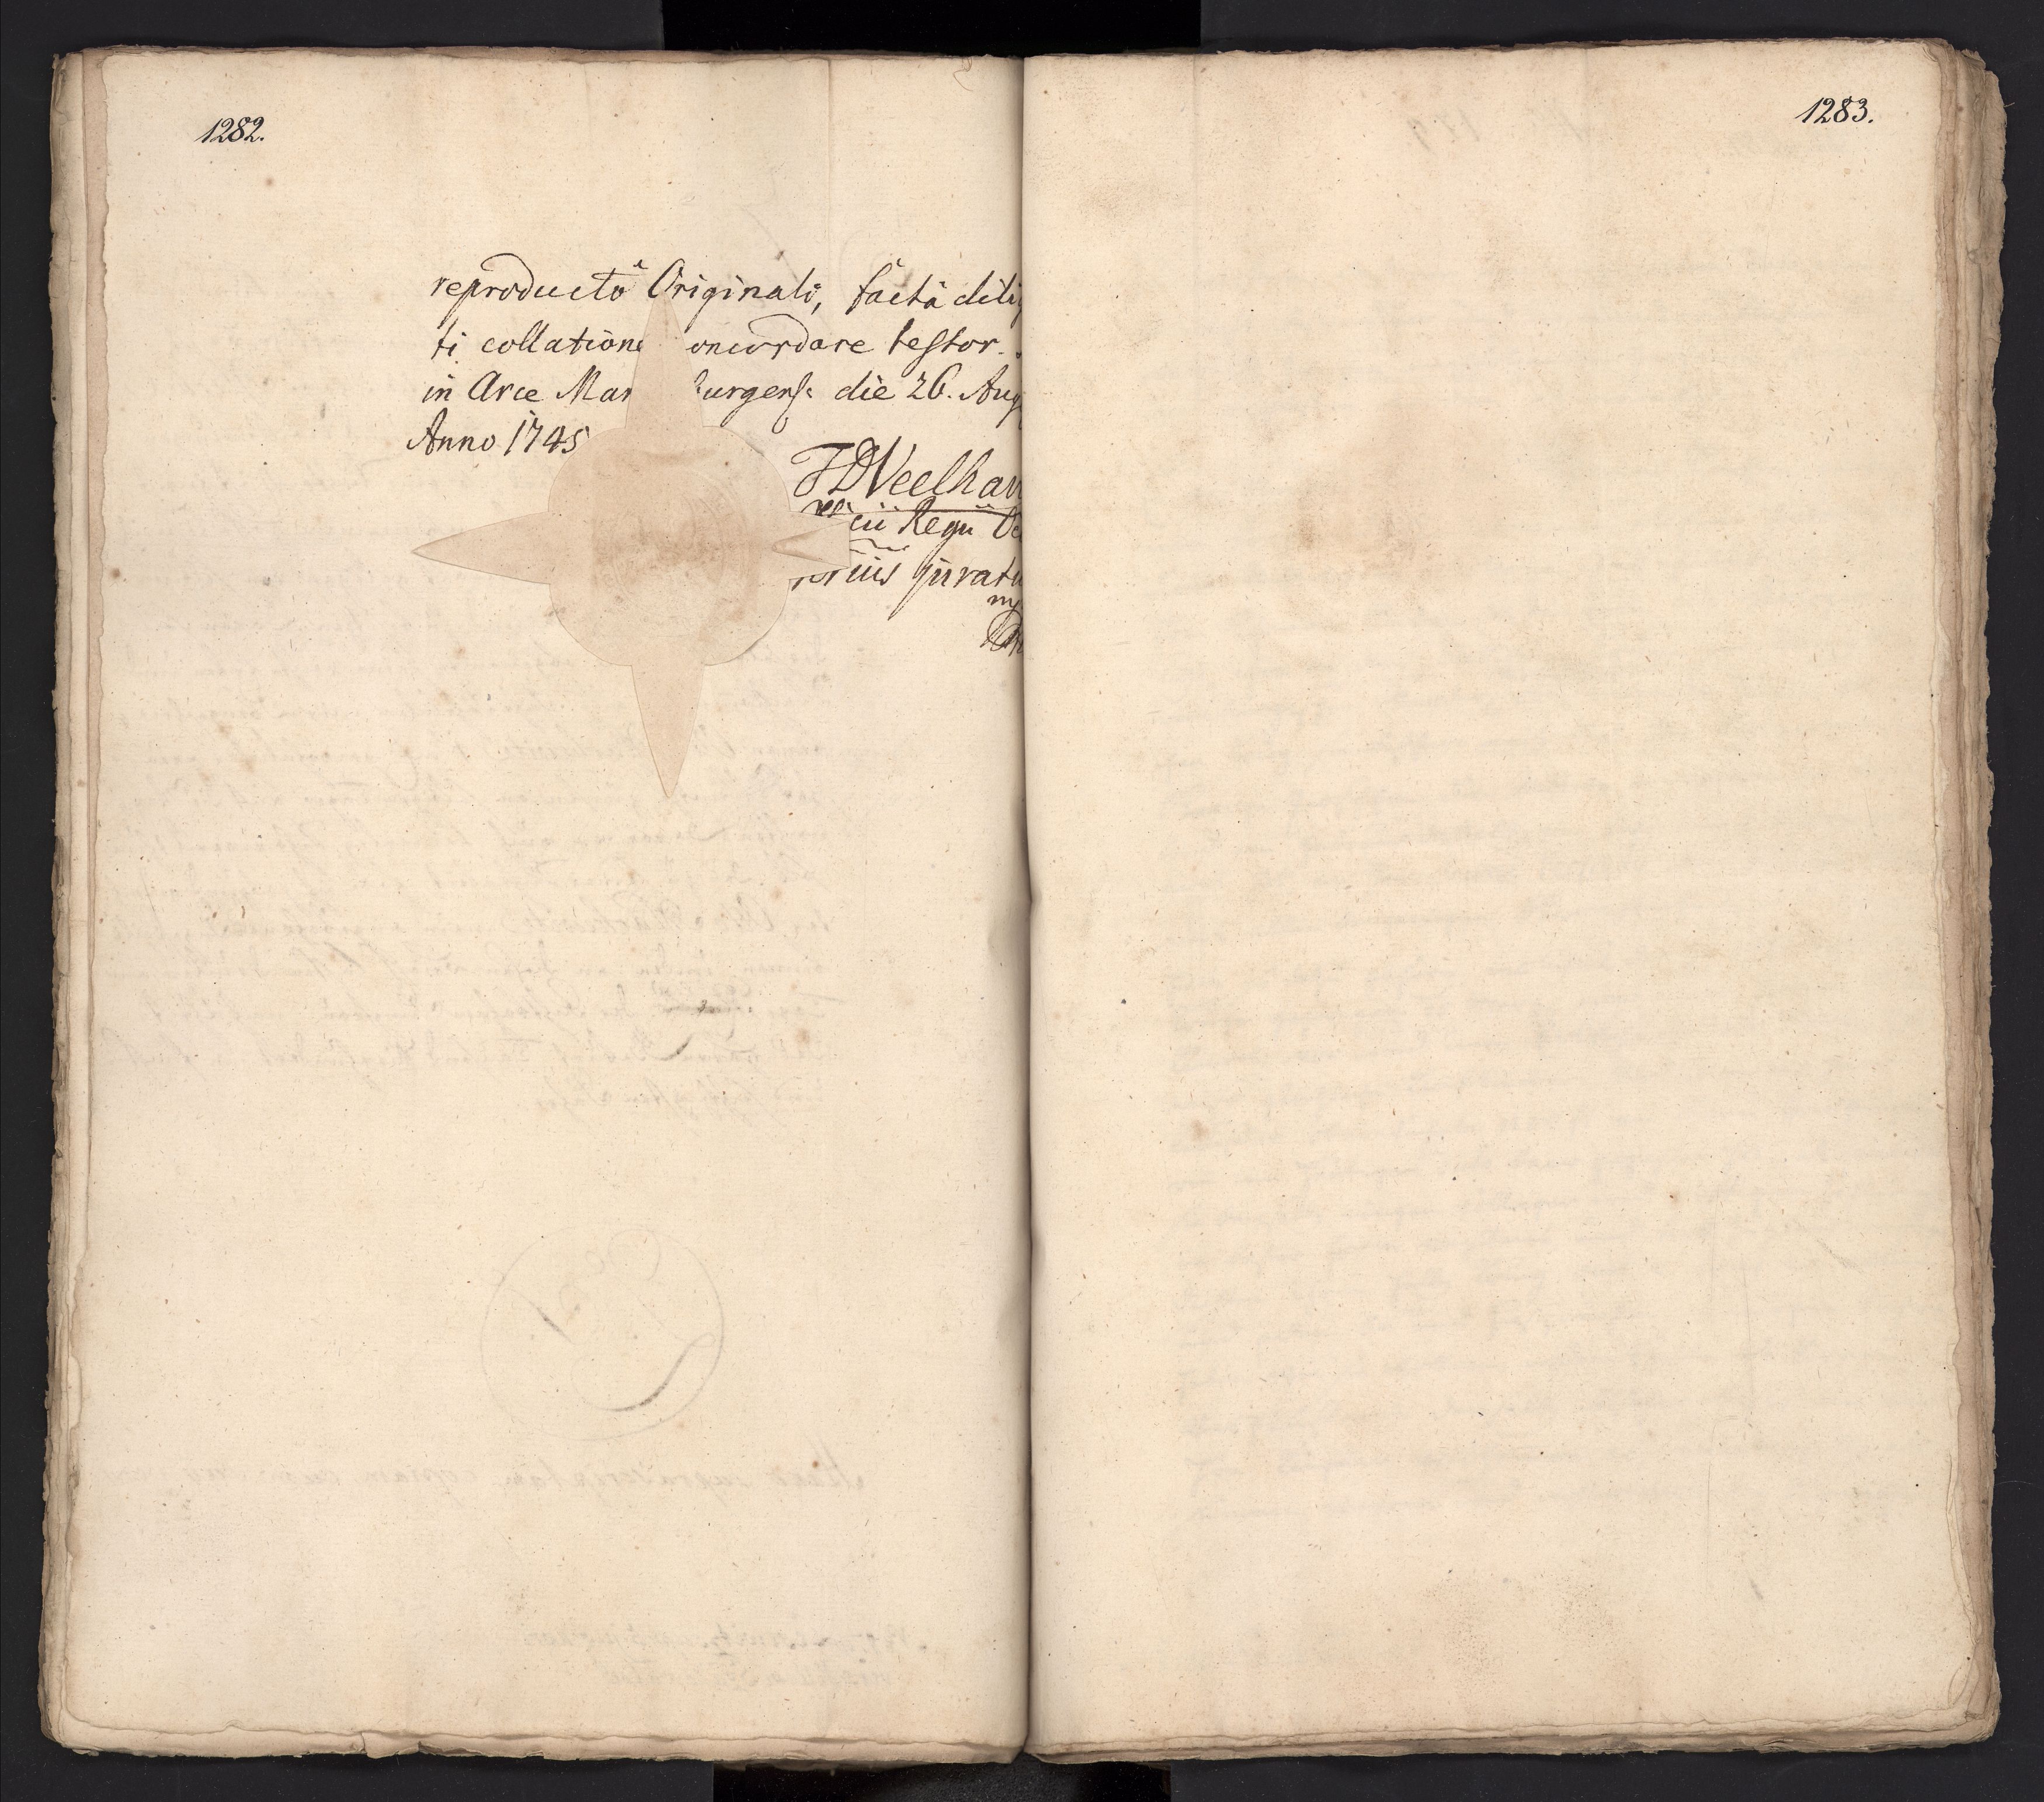 1282.
reproductô Originali, factâ dilig
ti collatione oncordare testor.
in Arce Mar burgens: die 26. Aug
Anno 1745
JDVeelhav
cii Regii
juratu
mp
1283.